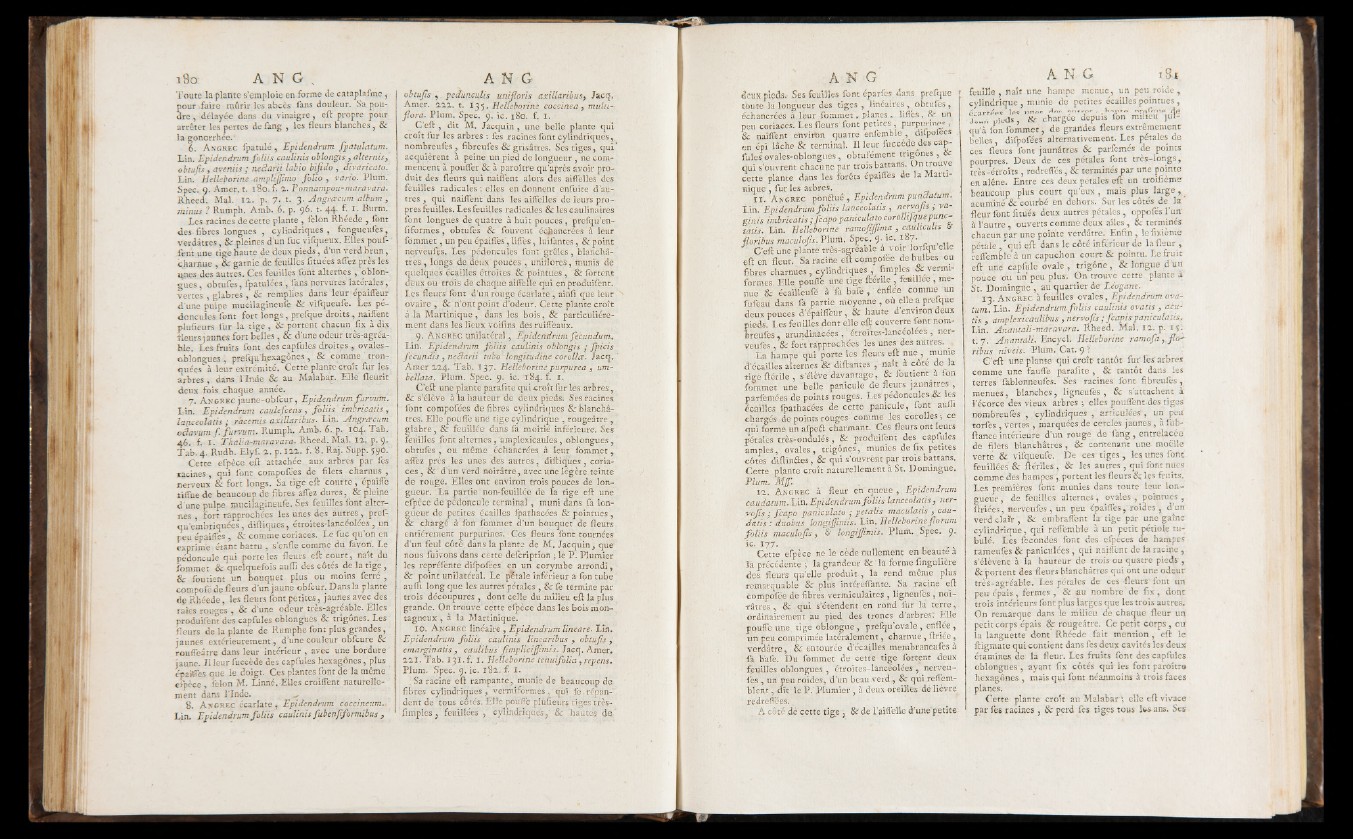 180 A N G .
Toute la plante s'emploie en forme de cataplasme,
pour faire mûrir les abcès sans douleur. Sa pou-
dre, délayée dans du vinaigre, est propre pour
arrêter les pertes de sang, les fleurs blanches, &
la gonorrhée.
6. ANGREC spatulé, Epidendrum spatulatum.
Lin. Epidendrum foliis caulinis oblongis, alternis,
obtusis, aveniis; nectarii labio bifido, divaricato.
Lin. Helleborine amplissimo folio, vario. Plum.
Spec. 9. Amer. t. 180. f. 2. Ponnampou-maravara.
Rheed. Mal. 12. p. 7. t. 3. Angræcum album,
minus? Rumph. Amb. 6. p. 96. t. 44. f. 1. Burm.
Les racines de cette plante, selon Rhéede, sont
des fibres longues, cylindriques, fongueuses,
verdâtres, & pleines d'un suc visqueux. Elles pous-
sent une tige haute de deux pieds, d'un verd brun,
charnue, & garnie de feuilles situées assez près les
unes des autres. Ces feuilles sont alternes, oblon-
gues, obtuses, spatulées, sans nervures latérales,
vertes, glabres, & remplies dans leur épaisseur
d'une pulpe mucilagineuse & visqueuse. Les pé-
doncules sont fort longs, presque droits, naissent
plusieurs sur la tige, & portent chacun six à dix
fleurs jaunes fort belles, & d'une odeur très-agréa-
ble. Les fruits sont des capsules droites, ovales-
oblongues, presqu'hexagônes, & comme tron-
quées à leur extrémité. Cette plante croît sur les
arbres, dans l'Inde & au Malabar. Elle fleurit
deux fois chaque année.
7. ANGREC jaune-obscur, Epidendrum furvum.
Lin. Epidendrum caulescens, foliis imbricatis,
lanceolatis; racemis axillaribus. Lin. Angræcum
octavum s. furvum. Rumph. Amb. 6. p. 104. Tab.
46. f. 1. Thalia-maravara. Rheed. Mal. 12. p. 9.
Tab. 4. Rudh. Elys. 2. p. 122. f. 8. Raj. Supp. 590.
Cette espèce est attachée aux arbres par ses
racines, qui sont composées de filets charnus,
nerveux & fort longs. Sa tige est courte, épaisse
tissue de beaucoup de fibres assez dures, & pleine
d'une pulpe mucilagineuse. Ses feuilles sont alter-
nes, fort rapprochées les unes des autres, pres-
qu'embriquées, distiques, étroites-lancéolées, un
peu épaisses, & comme coriaces. Le suc qu'on en
exprime étant battu, s'enfle comme du savon. Le
pédoncule qui porte les fleurs est court, naît du
sommet & quelquefois aussi des côtés de la tige,
& soutient un bouquet plus ou moins serré,
composé de fleurs d'un jaune obscur. Dans la plante
de Rhéede, les fleurs sont petites, jaunes avec des
raies rouges, & d'une odeur très-agréable. Elles
produisent des capsules oblongues & trigônes. Les
fleurs de la plante de Rumphe sont plus grandes,
jaunes extérieurement, d'une couleur obscure &
roussâtre dans leur intérieur, avec une bordure
jaune. Il leur succède des capsules hexagônes, plus
épaisses que le doigt. Ces plantes sont de la même
espèce, selon M. Linné. Elles croissent naturelle-
ment dans l'Inde.
8. ANGREC écarlate, Epidendrum coccineum.
Lin. Epidendrum foliis caulinis subensiformibus,
A N G
obtusis, pedunculis unifloris axillaribus, Jacq.
Amer. 222. t. 135. Helleborine coccinea, multi-
flora. Plum. Spec. 9. ic. 180. f. 1.
C'est, dit M. Jacquin, une belle plante qui
croît sur les arbres: ses racines sont cylindriques,
nombreuses, fibreuses & grisâtres. Ses tiges, qui
acquièrent à peine un pied de longueur, ne com-
mencent à pousser & à paroître qu'après avoir pro-
duit des fleurs qui naissent alors des aisselles des
feuilles radicales: elles en donnent ensuite d'au-
tres, qui naissent dans les aisselles de leurs pro-
pres feuilles. Les feuilles radicales & les caulinaires
sont longues de quatre à huit pouces, presqu'en-
siformes, obtuses & souvent échancrées à leur
sommet, un peu épaisses, lisses, luisantes, & point
nerveuses. Les pédoncules sont grêles, blanchâ-
tres, longs de deux pouces, uniflores, munis de
quelques écailles étroites & pointues, & sortent
deux ou trois de chaque aisselle qui en produisent.
Les fleurs sont d'un rouge écarlate, ainsi que leur
ovaire, & n'ont point d'odeur. Cette plante croît
à la Martinique, dans les bois, & particulière-
ment dans les lieux voisins des ruisseaux.
9. ANGREC unilatéral, Epidendrum secundum.
Lin. Epidendrum foliis caulinis oblongis; spicis
secundis, nectarii tubo longitudine corollæ. Jacq.
Amer 224. Tab. 137. Helleborine purpurea, um-
bellata. Plum. Spec. 9. ic. 184. f. 1.
C'est une plante parasite qui croît sur les arbres,
& s'élève à la hauteur de deux pieds. Ses racines
sont composées de fibres cylindriques & blanchâ-
tres. Elle pousse une tige cylindrique, rougeâtre,
glabre, & feuillée dans sa moitié inférieure. Ses
feuilles sont alternes, amplexicaules, oblongues,
obtuses, ou même échancrées à leur sommet,
assez près les unes des autres, distiques, coria-
ces, & d'un verd noirâtre, avec une légère teinte
de rouge. Elles ont environ trois pouces de lon-
gueur. La partie non-feuillée de la tige est une
espèce de pédoncule terminal, muni dans sa lon-
gueur de petites écailles spathacées & pointues,
& chargé à son sommet d'un bouquet de fleurs
entièrement purpurines. Ces fleurs sont tournées
d'un seul côté dans la plante de M. Jacquin, que
nous suivons dans cette description; le P. Plumier
les représente disposées en un corymbe arrondi,
& point unilatéral. Le pétale inférieur a son tube
aussi long que les autres pétales, & se termine par
trois découpures, dont celle du milieu est la plus
grande. On trouve cette espèce dans les bois mon-
tagneux, à la Martinique.
10. ANGREC linéaire, Epidendrum lineare. Lin.
Epidendrum foliis caulinis linearibus, obtusis,
emarginatis, caulibus simplicissimis. Jacq. Amer.
221. Tab. 131. f. 1. Helleborine tenuifolia, repens.
Plum. Spec. 9. ic. 182. f. 1.
Sa racine est rampante, munie de beaucoup de
fibres cylindriques, vermiformes, qui se répan-
dent de tous côtés. Elle pousse plusieurs tiges très-
simples, feuillées, cylindriques, & hautes de
A N G
deux pieds. Ses feuilles sont éparses dans presque
toute la longueur des tiges, linéaires, obtuses,
échancrées à leur sommet, planes, lisses, & un
peu coriaces. Les fleurs sont petites, purpurines,
& naissent environ quatre ensemble, disposées
en épi lâche & terminal. Il leur succède des cap-
sules ovales-oblongues, obtusément trigônes, &
qui s'ouvrent chacune par trois battans. On trouve
cette plante dans les forêts épaisses de la Marti-
nique, sur les arbres.
11. ANGREC ponctué, Epidendrum punctatum.
Lin. Epidendrum foliis lanceolatis, nervosis; va-
ginis imbricatis; scapo paniculato corollisque punc-
tatis. Lin. Helleborine ramosissima, cauliculis &
floribus maculosis. Plum. Spec. 9. ic. 187.
C'est une plante très-agréable à voir lorsqu'elle
est en fleur. Sa racine est composée de bulbes ou
fibres charnues, cylindriques, simples & vermi-
formes. Elle pousse une tige stérile, feuillée, me-
nue & écailleuse à sa base, enflée comme un
fuseau dans sa partie moyenne, où elle a presque
deux pouces d'épaisseur, & haute d'environ deux
pieds. Les feuilles dont elle est couverte sont nom-
breuses, arundinacées, étroites-lancéolées, ner-
veuses, & fort rapprochées les unes des autres.
La hampe qui porte les fleurs est nue, munie
d'écailles alternes & distantes, naît à côté de la
tige stérile, s'élève davantage, & soutient à son
sommet une belle panicule de fleurs jaunâtres,
parsemées de points rouges. Les pédoncules & les
écailles spathacées de cette panicule, sont aussi
chargés de points rouges comme les corolles; ce
qui forme un aspect charmant. Ces fleurs ont leurs
pétales très-ondulés, & produisent des capsules
amples, ovales, trigônes, munies de six petites
côtes distinctes, & qui s'ouvrent par trois battans.
Cette plante croît naturellement à St. Domingue.
Plum. Mss.
12. ANGREC à fleur en queue, Epidendrum
caudatum. Lin. Epidendrum foliis lanceolatis, ner-
vosis; scapo paniculato; petalis maculatis, cau-
datis: duobus longissimis. Lin. Helleborine florum
foliis maculosis, & longissimis. Plum. Spec. 9.
ic. 177.
Cette espèce ne le cède nullement en beauté à
la précédente; la grandeur & la forme singulière
des fleurs qu'elle produit, la rend même plus
remarquable & plus intéressante. Sa racine est
composée de fibres verniculaires, ligneuses, noi-
râtres, & qui s'étendent en rond sur la terre,
ordinairement au pied des troncs d'arbres. Elle
pousse une tige oblongue, presqu'ovale, enflée,
un peu comprimée latéralement, charnue, striée,
verdâtre, & entourée d'écailles membraneuses à
sa base. Du sommet de cette tige sortent deux
feuilles oblongues, étroites-lancéolées, nerveu-
ses, un peu roides, d'un beau verd, & qui ressem-
blent, dit le P. Plumier, à deux oreilles de lièvre
redressées.
A côté de cette tige, & de l'aisselle d'une petite
A N G 181
feuille, naît une hampe menue, un peu roide,
cylindrique, munie de petites écailles pointues,
pieds, & chargée depuis son milieu jus-
qu'à son sommet, de grandes fleurs extrêmement
belles, disposées alternativement. Les pétales de
ces fleurs sont jaunâtres & parsemés de points
pourpres. Deux de ces pétales sont très-longs,
très-étroits, redressés, & terminés par une pointe
en alêne. Entre ces deux pétales est un troisième
beaucoup plus court qu'eux, mais plus large,
acuminé & courbé en dehors. Sur les côtés de la
fleur sont situés deux autres pétales, opposés l'un
à l'autre, ouverts comme deux aîles, & terminés
chacun par une pointe verdâtre. Enfin, le sixième
pétale, qui est dans le côté inférieur de la fleur,
ressemble à un capuchon court & pointu. Le fruit
est une capsule ovale, trigône, & longue d'un
pouce ou un peu plus. On trouve cette plante à
St. Domingue, au quartier de Léogane.
13. ANGREC à feuilles ovales, Epidendrum ova-
tum. Lin. Epidendrum foliis caulinis ovatis, acu-
tis, amplexicaulibus, nervosis; scapis paniculatis.
Lin. Anantali-maravara. Rheed. Mal. 12. p. 15.
t. 7. Anantali. Encycl. Helleborine ramosa, flo-
ribus niveis. Plum. Cat. 9?
C'est une plante qui croît tantôt sur les arbres
comme une fausse parasite, & tantôt dans les
terres sablonneuses. Ses racines sont fibreuses,
menues, blanches, ligneuses, & s'attachent à
l'écorce des vieux arbres; elles poussent des tiges
nombreuses, cylindriques, articulées, un peu
torses, vertes, marquées de cercles jaunes, à sub-
stance intérieure d'un rouge de sang, entrelacée
de filets blanchâtres, & contenant une moëlle
verte & visqueuse. De ces tiges, les unes sont
feuillées & stériles, & les autres, qui sont nues
comme des hampes, portent les fleurs & les fruits.
Les premières sont munies dans toute leur lon-
gueur, de feuilles alternes, ovales, pointues,
striées, nerveuses, un peu épaisses, roides, d'un
verd clair, & embrassent la tige par une gaîne
cylindrique, qui ressemble à un petit pétiole tu-
bulé. Les secondes sont des espèces de hampes
rameuses & paniculées, qui naissent de la racine,
s'élèvent à la hauteur de trois ou quatre pieds,
& portent des fleurs blanchâtres qui ont une odeur
très-agréable. Les pétales de ces fleurs sont un
peu épais, fermes, & au nombre de six, dont
trois intérieurs sont plus larges que les trois autres.
On remarque dans le milieu de chaque fleur un
petit corps épais & rougeâtre. Ce petit corps, ou
la languette dont Rhéede fait mention, est le
stigmate qui contient dans ses deux cavités les deux
étamines de la fleur. Les fruits sont des capsules
oblongues, ayant six côtés qui les font paroître
hexagônes, mais qui sont néanmoins à trois faces
planes.
Cette plante croît au Malabar; elle est vivace
par ses racines, & perd ses tiges tous les ans. Ses